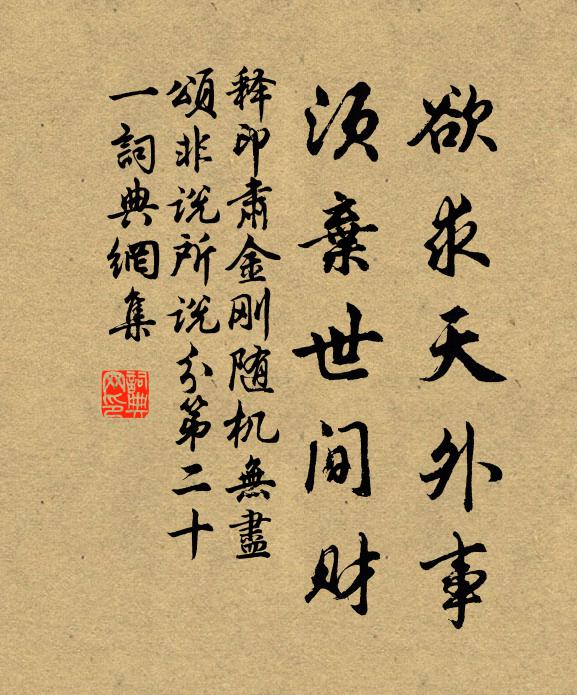 欲求天外事
须棄世间财
释印肃金刚随机無盡
頌非说所说分第二十
一詞典網集
詞典
网印